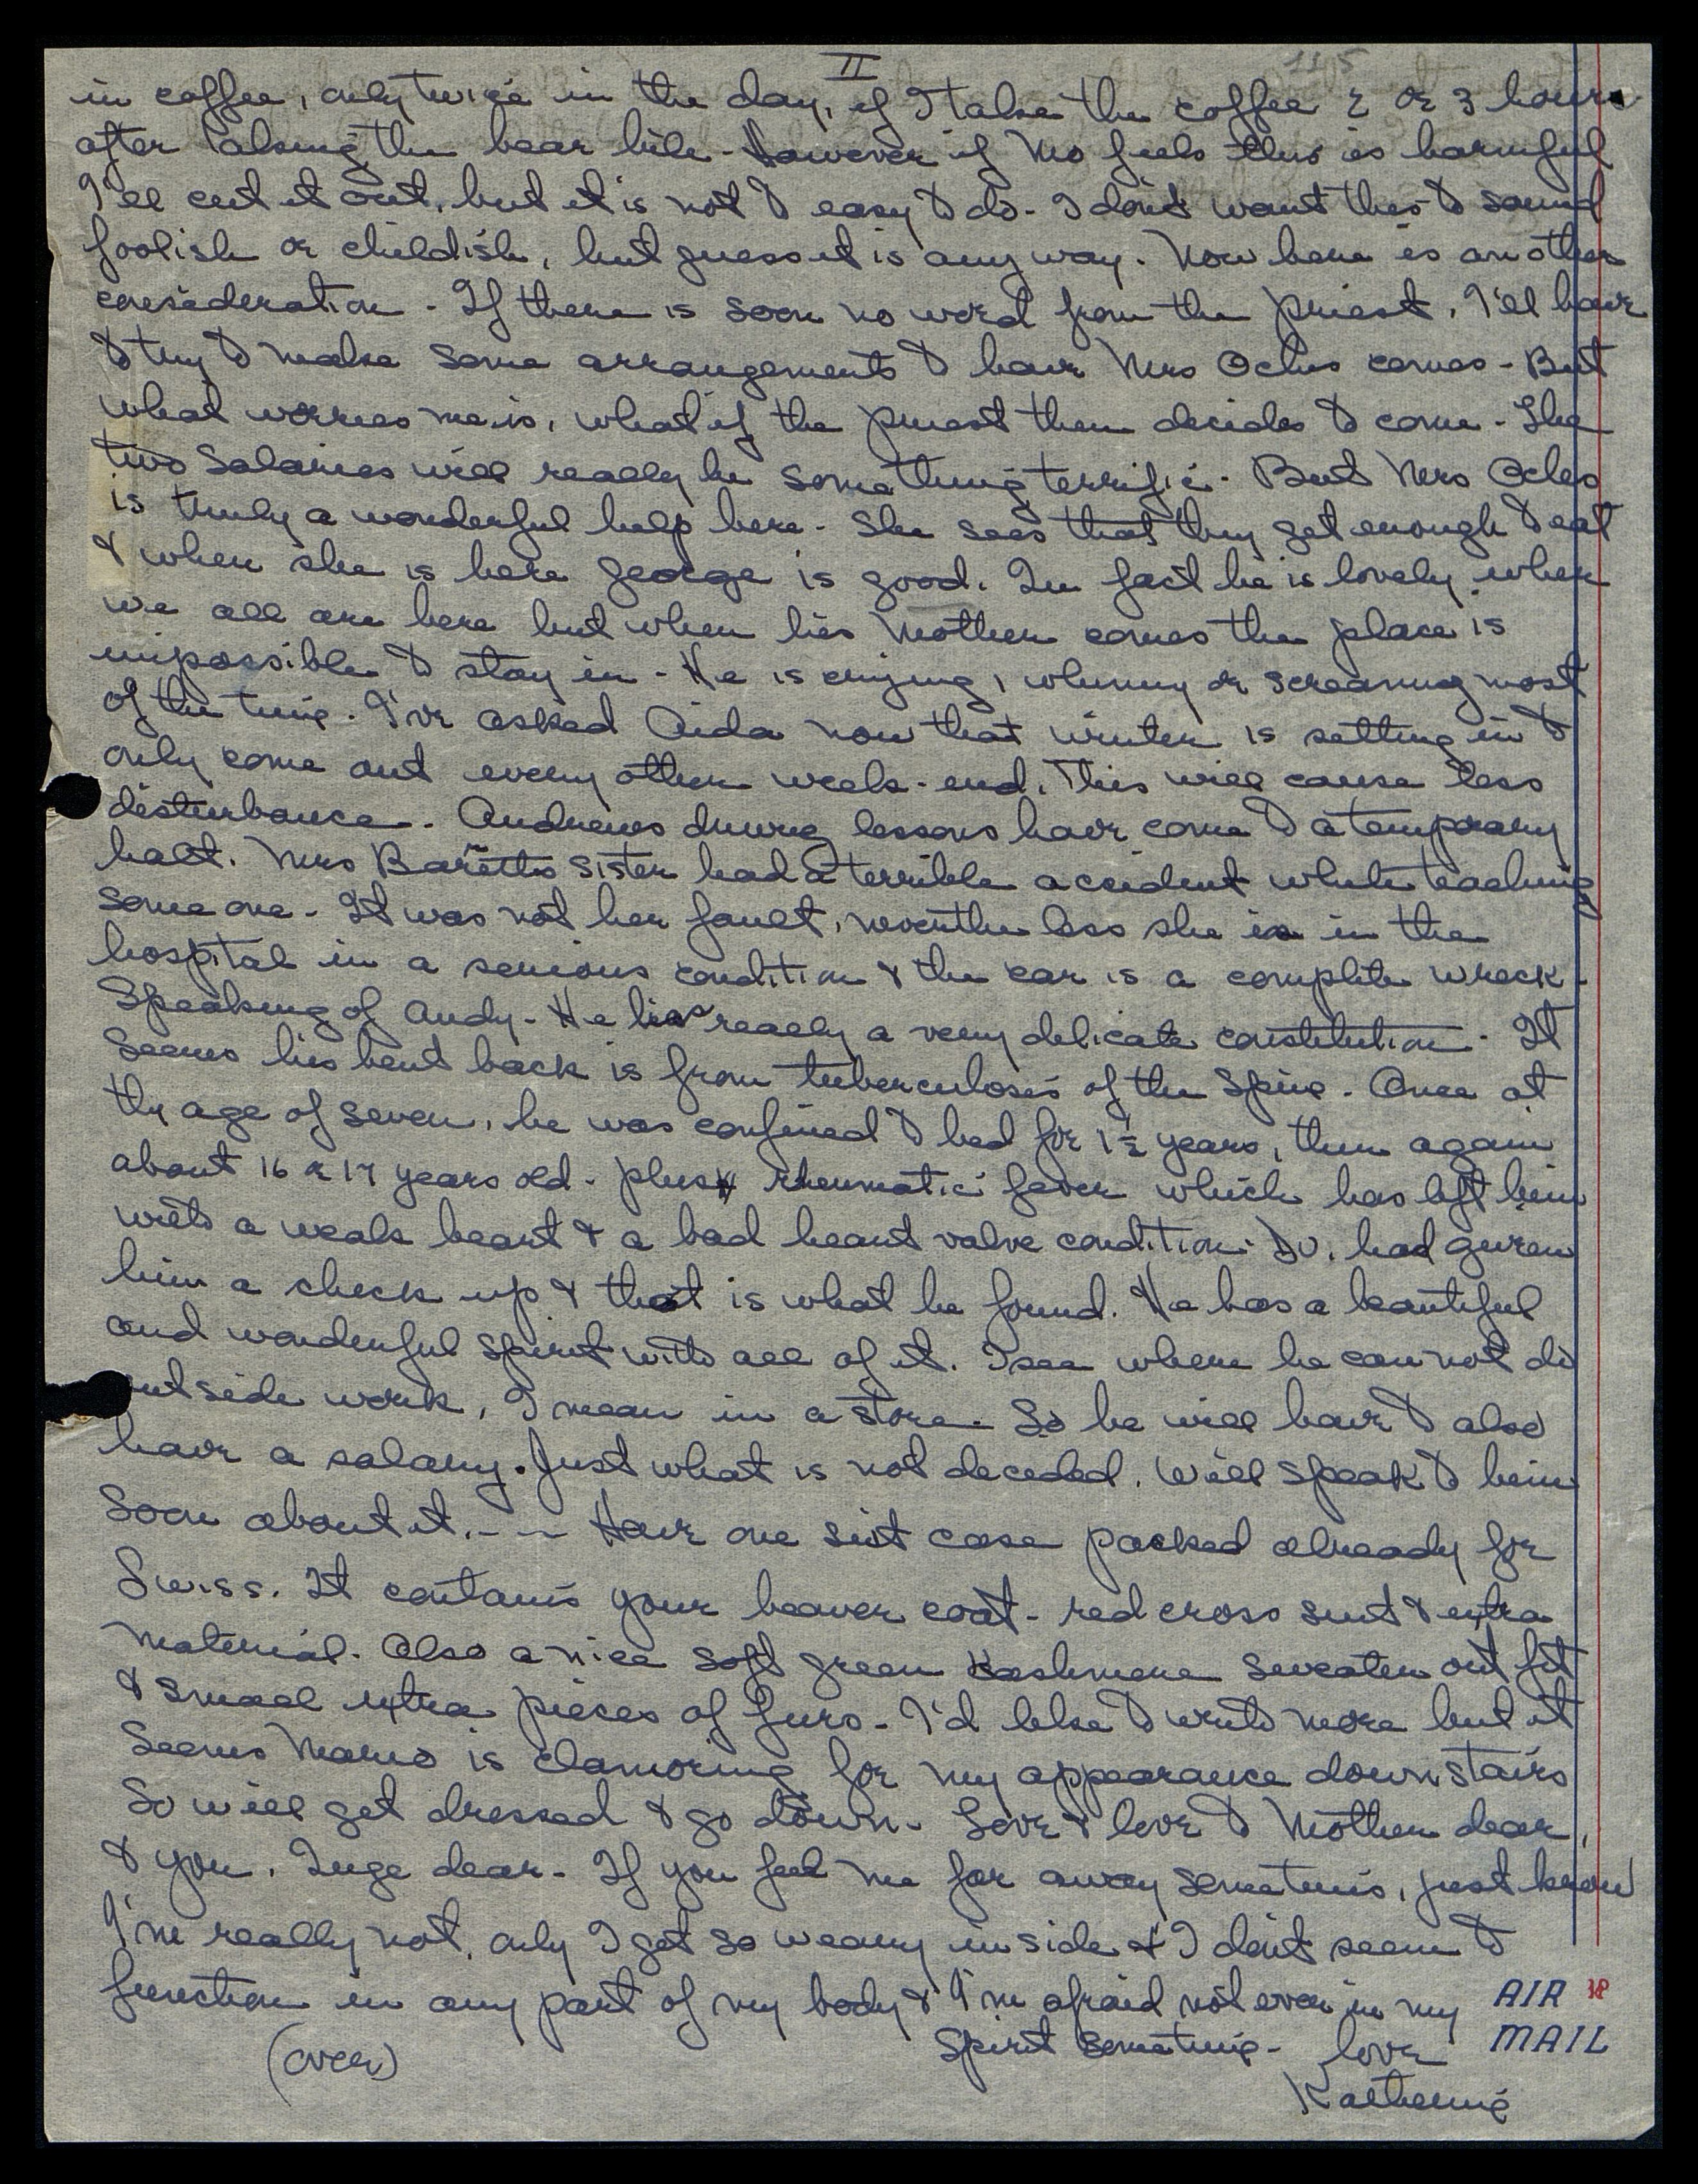 II
1115
in coffee, only twice in the day, if I take the coffee 2 or 3 hours
after taking the bear bile - However if Mo feels this is harmful
I'll cut it out, but it is not to easy to do - I don't want this to sound
foolish or childish, but guess it is any way. Now here is another
consideration - If there is soon no word from the priest, I'll have
to try to make some arrangements to have Mrs Ochs comes - But
what worries me is, what if the priest then decides to come - The
two salaries will really be something terrific. But Mrs Ochs
is truly a wonderful help here - She sees that they get enough to eat
& when she is here George is good. In fact he is lovely when
we all are here but when his Mother comes the place is
impossible to stay in - He is crying, whinny or screaming most
of the time. I've asked Aida now that winter is setting in to
only come out every other week-end. This will cause less
disturbance. Andrews driving lessons have come to a temporary
halt. Mrs Baretto sister had a terrible accident while teaching
someone - It was not her fault, neverthe less she is in the
hospital in a serious condition & the car is a complete wreck -
Speaking of Andy - He has really a very delicate constitution - It
seems his bent back is from tuberculosis of the spine - Once at
the age of seven, he was confined to bed for 1½ years, then again
about 16 or 17 years old - plus rheumatic fever which has left him
with a weak heart & a bad heart valve condition. Dr. had given
him a check up & that is what he found. He has a beautiful
and wonderful spirit with all of it. I see where he can not do
outside work, I mean in a store - So he will have to also
have a salary. Just what is not decided. Will speak to him
soon about it. - - ~ Have one suit case packed already for
Swiss. It contains your beaver coat - red cross suit & extra
material. Also a nice soft green Kashmere sweater out fit
& small extra pieces of furs - I'd like to write more but it
seems Mario is clamoring for my appearance downstairs
So will get dressed & go down - Love & love to Mother dear,
& you, Inge dear - If you feel me far away sometimes, just know
I'm really not, only I get so weary inside & I don't seem to
function in any part of my body & I'm afraid not even in my
spirit sometime - love
Katherine
(over)
AIR
MAIL